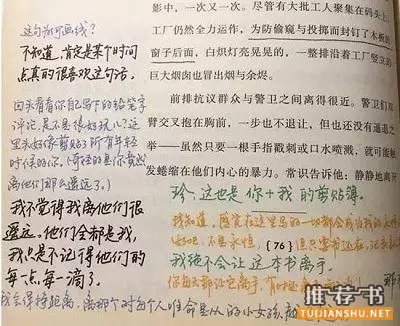 这句为何画线?
不知道,肯定是某个时间
点真的很喜欢这句话。
回头看看你自己写下的铅笔字
评论,是不是很好玩儿?这
里头好像剪贴了所有年轻
时候的你。(奇怪的是你竟然
离他们那么遥远了。)
我不觉得我离他们很
遥远。他们全都是我,
我只是不记得他们的
每一点每一滴了。
影中,一次又一次。尽管有大批工人聚集在码头上,
工厂仍然全力运作,为防偷窥与投掷而封钉了木板的
窗子后面,白炽灯亮晃晃的,一整排沿着工厂竖立的
巨大烟囱也冒出烟与余烬。
前排抗议群众与警卫之间离得很近。警卫们双
臂交叉抱在胸前,一步也不退让,但也还没有逼退之
举——虽然只要一根手指戳刺或口水喷溅,就可能触
发蜷缩在他们内心的暴力。常识告诉他:静静地离开
这也是你+我的剪贴簿。
我知道,感觉在这里写的一切都会成为我的永恒
{76}
我绝不会让这本书离手。
我会保持距离,离那个对每个人唯命是从的小女孩
推荐书
TUIJIANSHU.NET